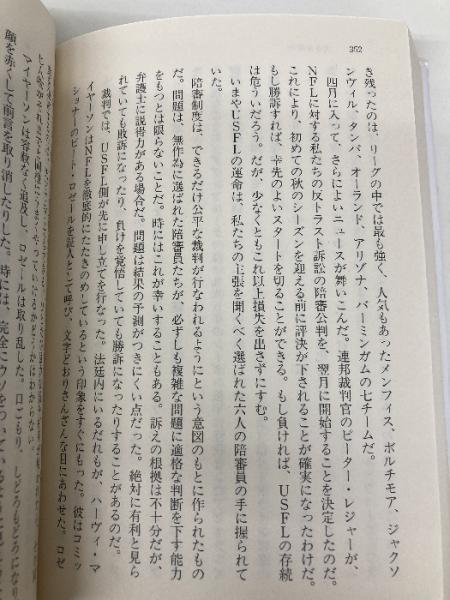 352
き残ったのは、リーグの中では最も強く、人気もあったメンフィス、ボルチモア、ジャクソ
ンヴィル、タンパ、オーランド、アリゾナ、バーミンガムの七チームだ。
四月に入って、さらによいニュースが舞いこんだ。連邦裁判官のピーター・レジャーが、
NFLに対する私たちの反トラスト訴訟の陪審公判を、翌月に開始することを決定したのだ。
これにより、初めての秋のシーズンを迎える前に評決が下されることが確実になったわけだ。
もし勝訴すれば、幸先のよいスタートを切ることができる。もし負ければ、USFLの存続
は危ういだろう。だが、少なくともこれ以上損失を出さずにすむ。
いまやUSFLの運命は、私たちの主張を聞くべく選ばれた六人の陪審員の手に握られて
いた。
陪審制度は、できるだけ公平な裁判が行なわれるようにという意図のもとに作られたもの
だ。問題は、無作為に選ばれた陪審員たちが、必ずしも複雑な問題に適格な判断を下す能力
をもつとは限らないことだ。時にはこれが幸いすることもある。訴えの根拠は不十分だが、
弁護士に説得力がある場合だ。問題は結果の予測がつきにくい点だった。絶対に有利と見ら
れていても敗訴になったり、負けを覚悟していても勝訴になったりすることがあるのだ。
裁判では、USFL側が先に申し立てを行なった。法廷内にいるだれもが、ハーヴィ・マ
イヤーソンはNFLを徹底的にたたきのめしているという印象をすぐにもった。彼はコミッ
ショナーのピート・ロゼールを証人として呼び、文字どおりさんざんな目にあわせた。ロゼ
マイヤーソンは容赦なく追及し、ロゼールは取り乱した。口ごもり、
顔を赤くして前言を取り消したりした。時には、完全にウソをついている